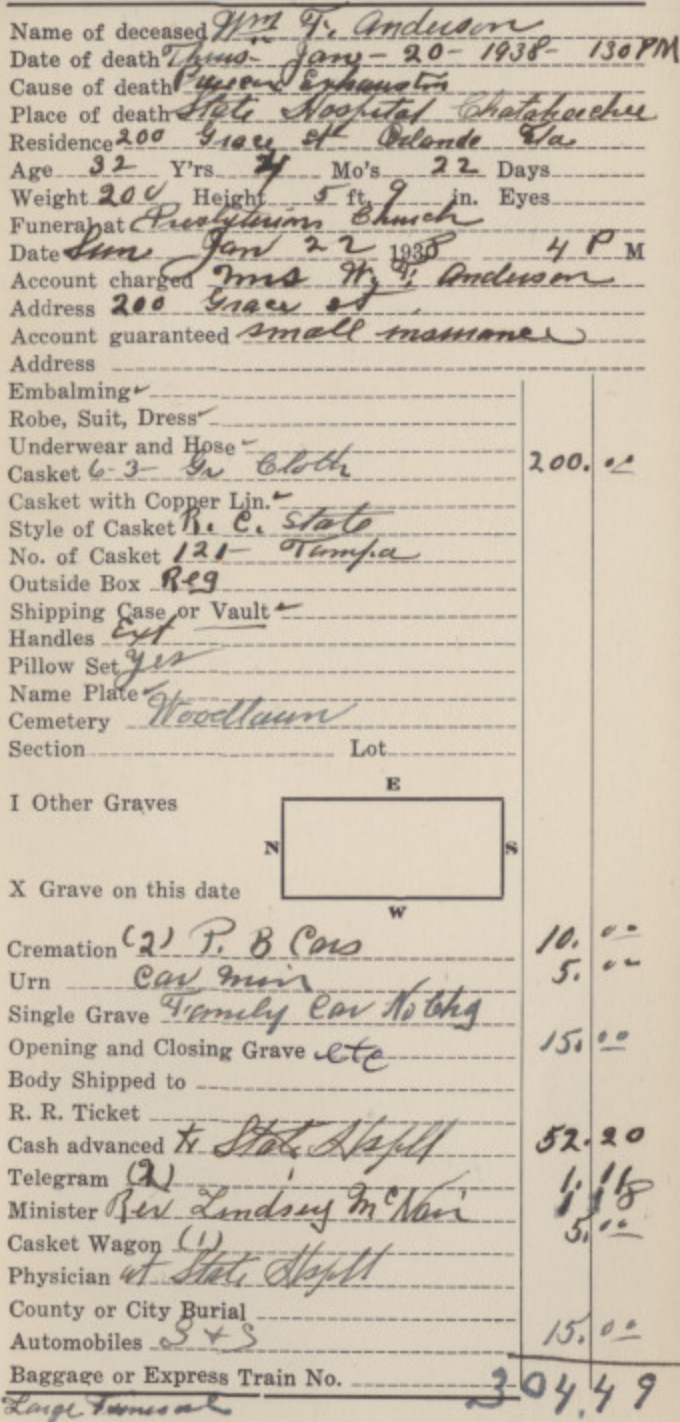 Name of deceased Wm F. Anderson
Date of death Thurs- Jan- 20- 1938- 130 PM
Cause of death Exhaustion
Place of death State Hospital Chatahoochee
Residence 200 Grace St Orlando Fla
Age 32 Y'rs Mo's 22 Days
Weight 200 Height 5 ft. 9 in. Eyes
Funeral at Presbyterian Church
Date Sun Jan 22 1938 4 P M
Account charged Mrs W. F. Anderson
Address 200 Grace st.
Account guaranteed small insurance
Address
Embalming ✓
Robe, Suit, Dress ✓
Underwear and Hose ✓
Casket 6-3- Gr Cloth 200.00
Casket with Copper Lin. ✓
Style of Casket R. C. State
No. of Casket 121- Tampa
Outside Box Reg
Shipping Case or Vault ✓
Handles Ext
Pillow Set yes
Name Plate ✓
Cemetery Woodlawn
Section Lot
E
I Other Graves
N S
X Grave on this date
W
Cremation (2) P. B Cars 10.00
Urn Car min 5.00
Single Grave Family Car No Chg
Opening and Closing Grave etc 15.00
Body Shipped to
R. R. Ticket
Cash advanced to State Hsptl 52.20
Telegram (2) 1.11
Minister Rev Lindsey McNair 1 18
Casket Wagon (1) 5.00
Physician at State Hsptl
County or City Burial
Automobiles S + S 15.00
Baggage or Express Train No. 304.49
Large Funeral